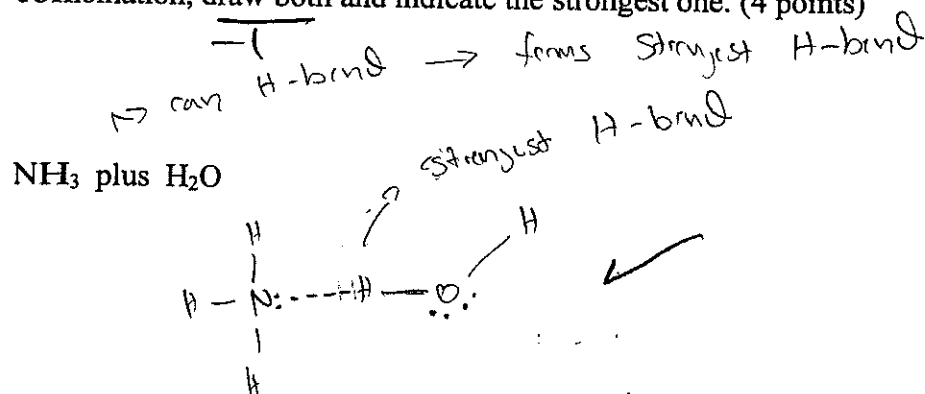 combination, draw both and indicate the strongest one. (4 points)
-1
↦ can H-bond → forms Strongest H-bond
strongest H-bond
NH₃ plus H₂O
H
H
H - N: ---- H — O
H